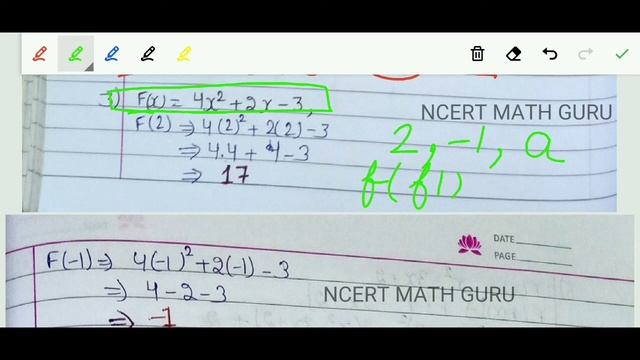 3) F(x) = 4x² + 2x - 3,
NCERT MATH GURU
F(2) ⇒ 4(2)² + 2(2) - 3
2, -1, a
⇒ 4.4 + 4 - 3
f(f1)
⇒ 17
DATE
PAGE
F(-1) ⇒ 4(-1)² + 2(-1) - 3
⇒ 4 - 2 - 3
NCERT MATH GURU
⇒ -1